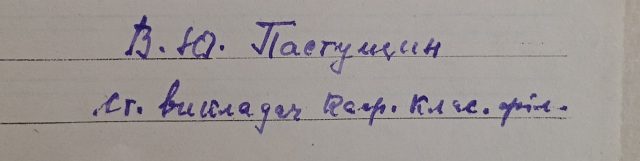 В. Ю. Пастущин
ст. викладач каф. клас. філ.